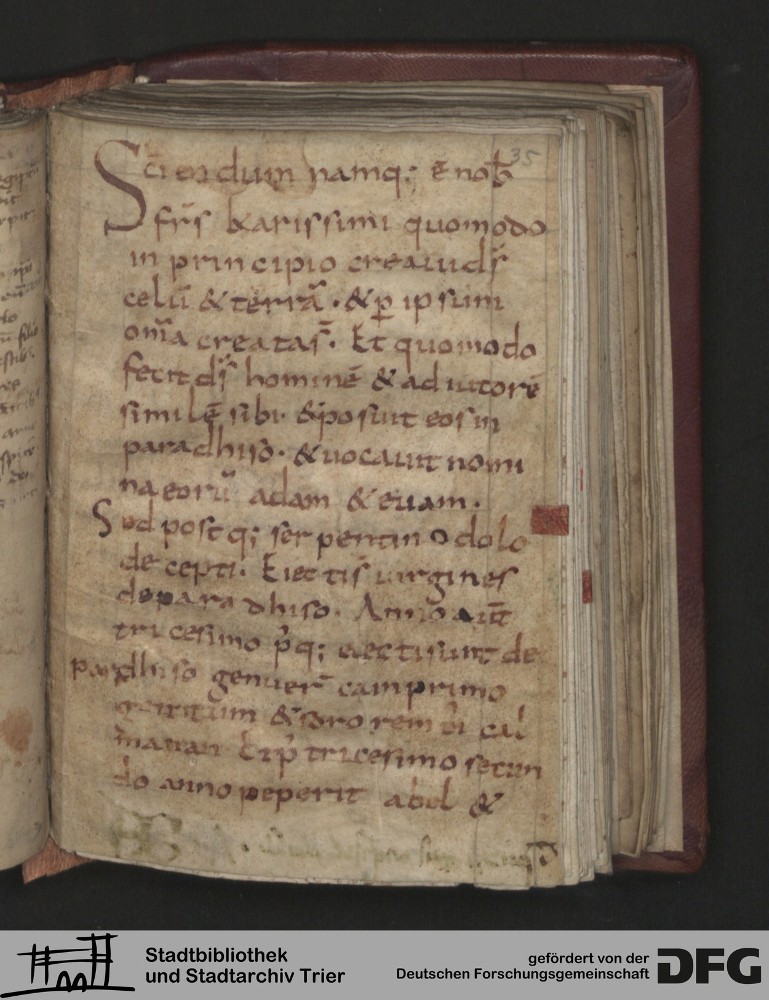 35
Sciendum namq; ē nob̄
fr̄s karissimi quomodo
in principio creauit dš
celū & terrā · & p̲ ipsum
om̄a creata s̄. Et quomodo
fecit dš hominē & adiutorē
similē sibi· & posuit eos in
paradhiso· & uocauit nomi
na eorū adam & euam·
Sed postq; serpentino dolo
decepti. Eiecti s̄ uirgines
de paradhiso. Anno aūt
tricesimo p̄q; eiecti sunt de
paradhiso genuer̄ cain primo
genitum & sororem ei cal
manan Et p̄ tricesimo secun
do anno peperit abel &
Stadtbibliothek
und Stadtarchiv Trier
gefördert von der
Deutschen Forschungsgemeinschaft
DFG